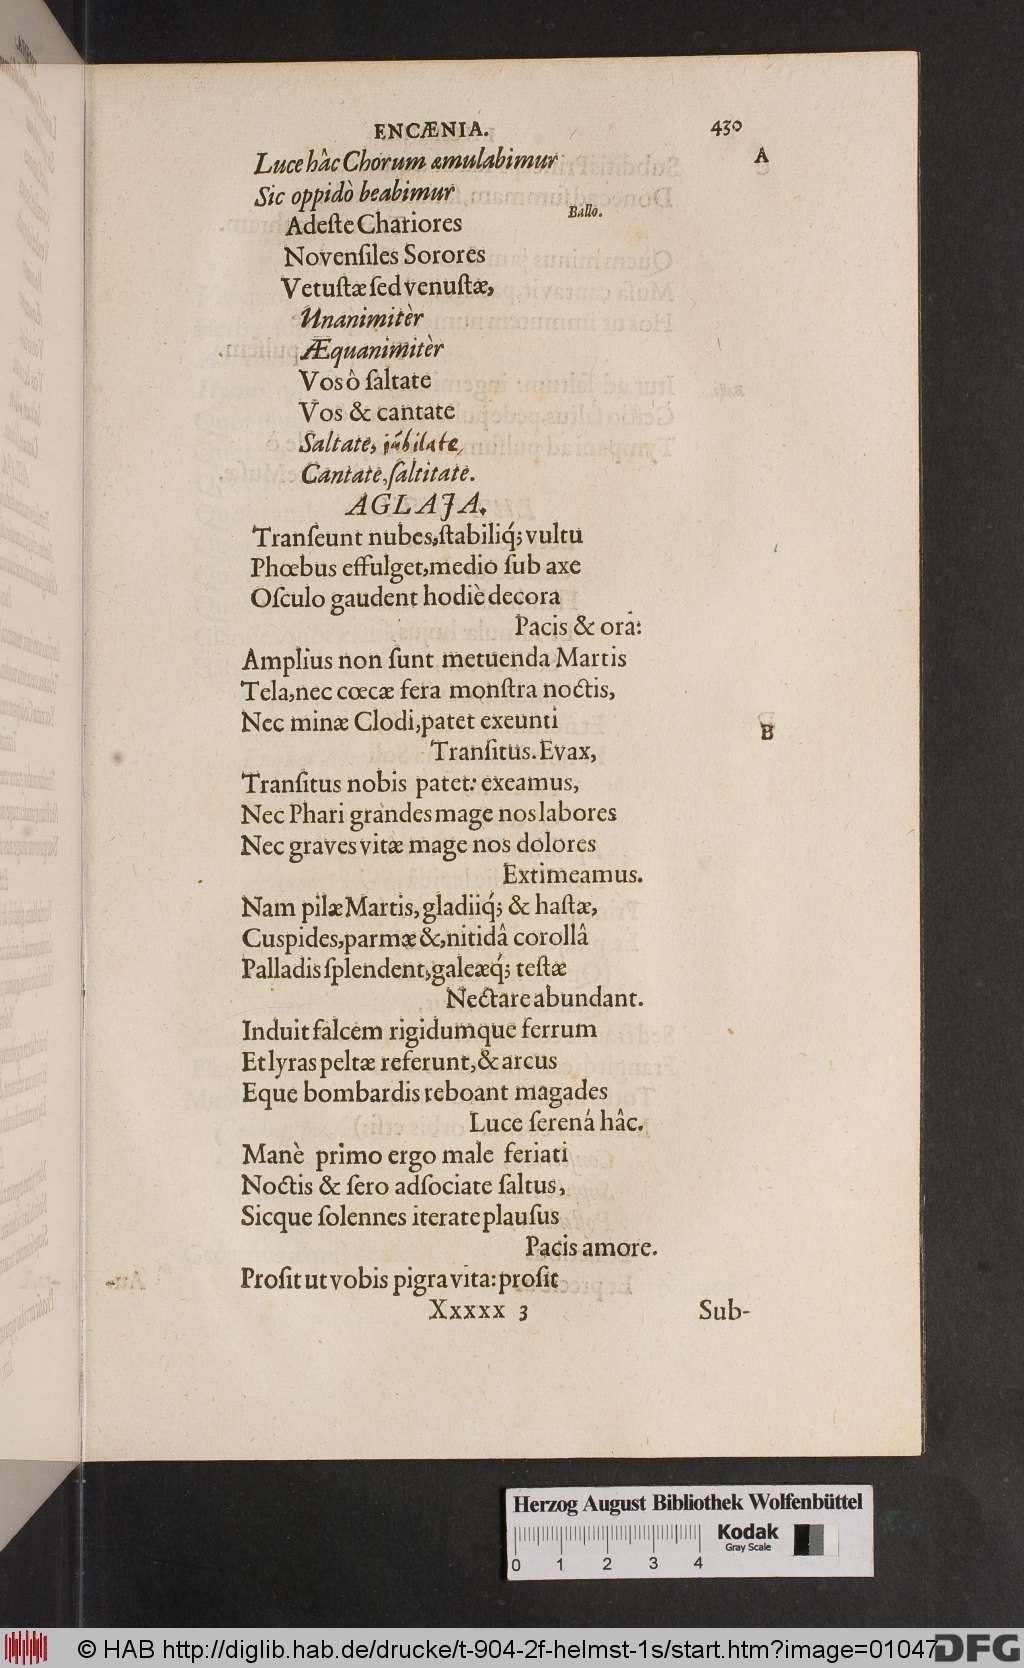 ENCÆNIA. 430
Luce hâc Chorum æmulabimur A
Sic oppidò beabimur
Ballo.
Adeſte Chariores
Novenſiles Sorores
Vetuſtæ ſed venuſtæ,
Unanimitèr
Æquanimitèr
Vos ò ſaltate
Vos & cantate
Saltate, júbilate,
Cantate, ſaltitate.
AGLAJA.
Tranſeunt nubes, ſtabiliq́; vultu
Phœbus effulget, medio ſub axe
Oſculo gaudent hodiè decora
Pacis & ora:
Amplius non ſunt metuenda Martis
Tela, nec cœcæ fera monſtra noctis,
Nec minæ Clodi, patet exeunti
B
Tranſitus. Evax,
Tranſitus nobis patet: exeamus,
Nec Phari grandes mage nos labores
Nec graves vitæ mage nos dolores
Extimeamus.
Nam pilæ Martis, gladiiq́; & haſtæ,
Cuspides, parmæ &, nitidâ corollâ
Palladis ſplendent, galeæq́; teſtæ
Nectare abundant.
Induit falcem rigidumque ferrum
Et lyras peltæ referunt, & arcus
Eque bombardis reboant magades
Luce ſerená hâc.
Manè primo ergo male feriati
Noctis & ſero adſociate ſaltus,
Sicque ſolennes iterate plauſus
Pacis amore.
Proſit ut vobis pigra vita: proſit
Xxxxx 3 Sub-
Herzog August Bibliothek Wolfenbüttel
Kodak
Gray Scale
0 1 2 3 4
© HAB http://diglib.hab.de/drucke/t-904-2f-helmst-1s/start.htm?image=01047
DFG